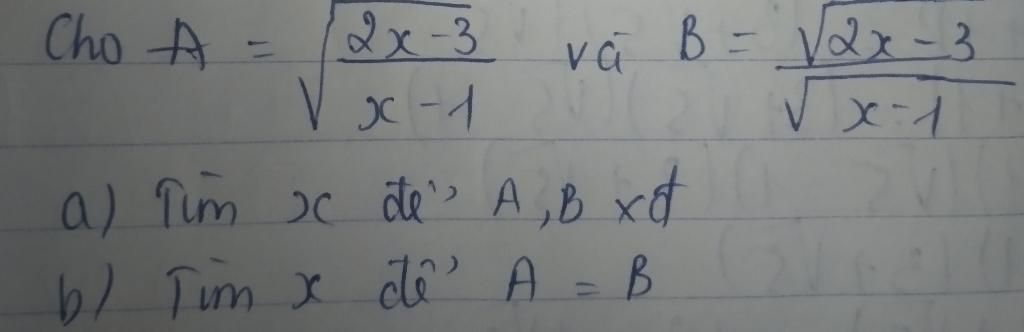 Cho A = √(2x-3 / x-1) và B = √(2x-3) / √(x-1)
a) Tìm x để A, B xđ
b) Tìm x để A = B